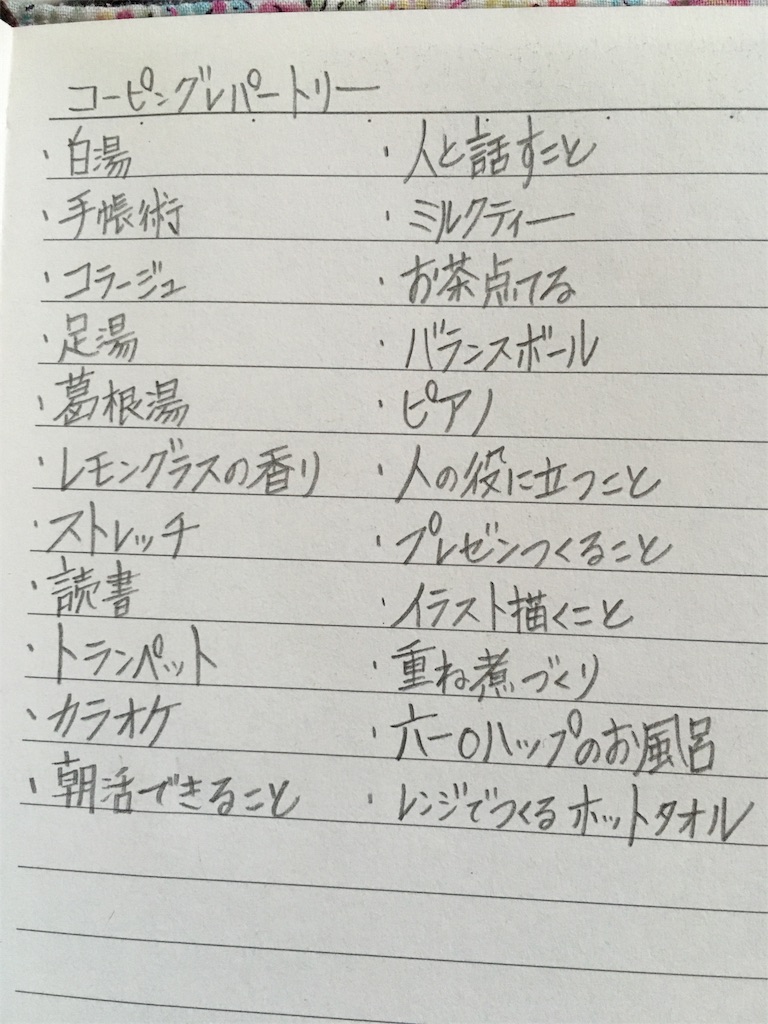 コーピングレパートリー
・白湯
・手帳術
・コラージュ
・足湯
・葛根湯
・レモングラスの香り
・ストレッチ
・読書
・トランペット
・カラオケ
・朝活できること
・人と話すこと
・ミルクティー
・お茶点てる
・バランスボール
・ピアノ
・人の役に立つこと
・プレゼンつくること
・イラスト描くこと
・重ね煮づくり
・六一〇ハップのお風呂
・レンジでつくるホットタオル